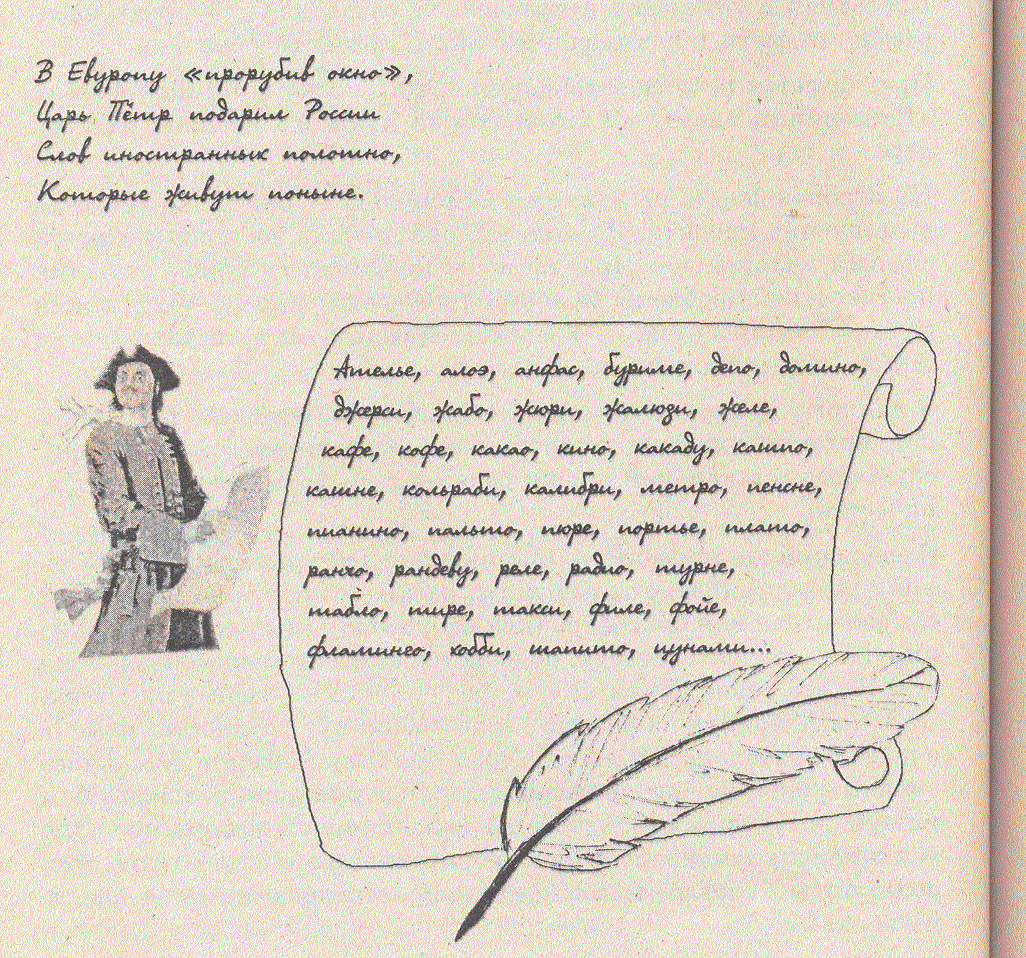 В Евуропу «прорубив окно»,
Царь Пётр подарил России
Слов иностранных полотно,
Которые живут поныне.
Ателье, алоэ, анфас, буриме, депо, домино,
джерси, жабо, жюри, жалюзи, желе,
кафе, кофе, какао, кино, какаду, кашпо,
кашне, кольраби, калибри, метро, пенсне,
пианино, пальто, пюре, портье, плато,
ранчо, рандеву, реле, радио, турне,
табло, тире, такси, филе, фойе,
фламинго, хобби, шапито, цунами...